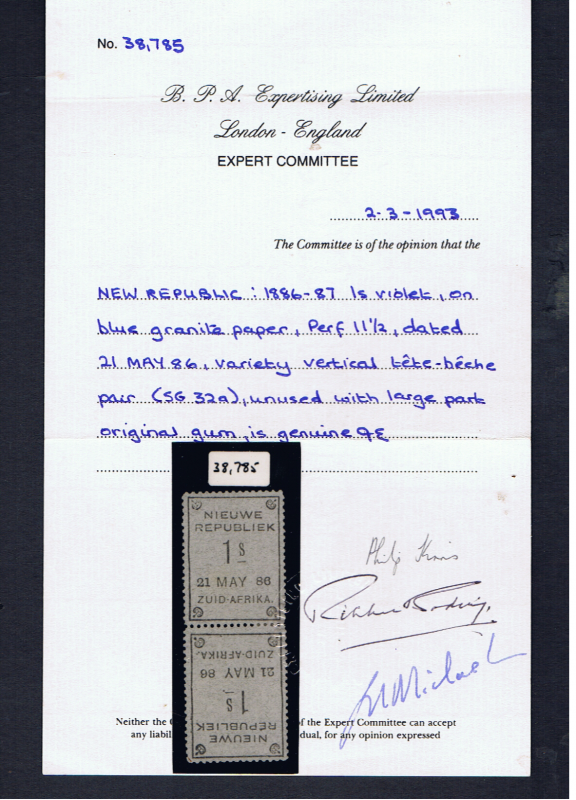 No. 38,785
B. P. A. Expertising Limited
London - England
EXPERT COMMITTEE
2-3-1993
The Committee is of the opinion that the
NEW REPUBLIC : 1886-87 1s violet, on
blue granite paper, Perf 11½, dated
21 MAY 86, variety vertical tête-bêche
pair (SG 32a), unused with large part
original gum, is genuine
38,785
NIEUWE
REPUBLIEK
1s
21 MAY 86
ZUID-AFRIKA.
ZUID-AFRIKA.
21 MAY 86
1s
REPUBLIEK
NIEUWE
Neither the of the Expert Committee can accept
any liabil dual, for any opinion expressed